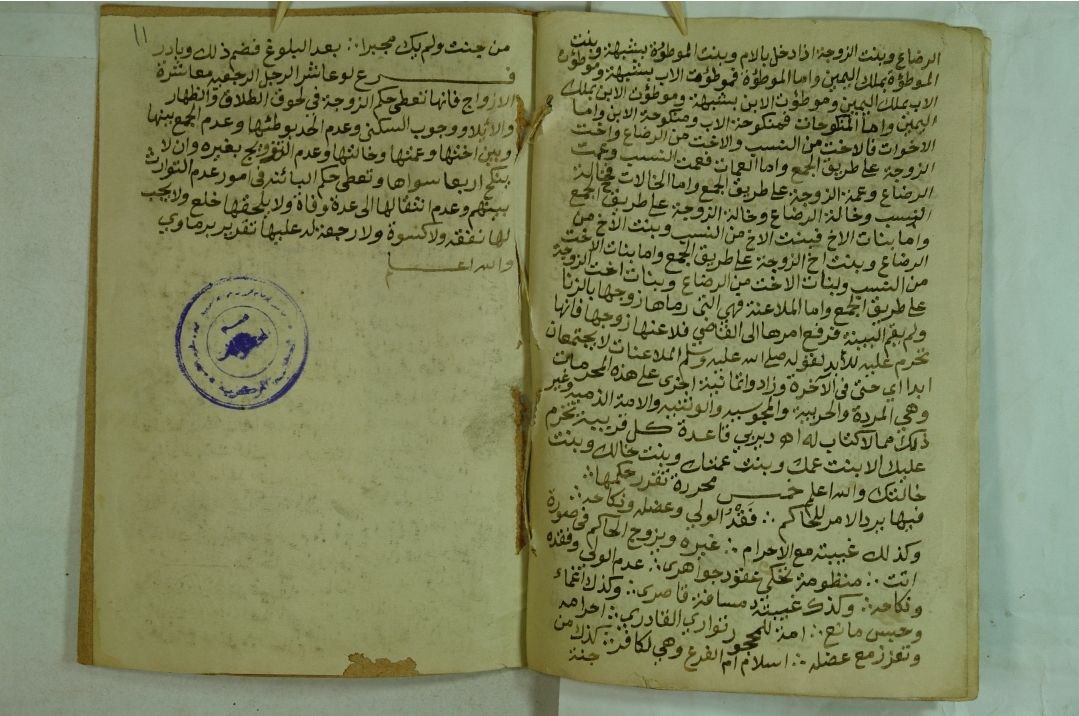 الرضاع وبنت الزوجة اذا دخل بالام وبنت الموطوءة بشبهة وبنت
الموطوءة بملك اليمين واما الموطوءة فموطوءة الاب بشبهة وموطوءة
الاب بملك اليمين وموطوءة الابن بشبهة وموطوءة الابن بملك
اليمين واما المنكوحات فمنكوحة الاب ومنكوحة الابن واما
الاخوات فالاخت من النسب والاخت من الرضاع واخت
الزوجة على طريق الجمع واما العمات فعمت النسب وعمت
الرضاع وعمة الزوجة على طريق الجمع واما الخالات فخالة
النسب وخالة الرضاع وخالة الزوجة على طريق الجمع
واما بنات الاخ فبنت الاخ من النسب وبنت الاخ من
الرضاع وبنت اخ الزوجة على طريق الجمع واما بنات الاخت
من النسب وبنات الاخت من الرضاع وبنات اخت الزوجة
على طريق الجمع واما الملاعنة فهي التي رماها زوجها بالزنا
ولم يقم البينة فرفع امرها الى القاضي فلاعنها زوجها فانها
تحرم عليه للابد لقوله صلى الله عليه وسلم الملاعنات لا يجتمعان
ابدا اي حتى في الآخرة وزادوا ثمانية اخرى على هذه المحرمات
وهي المردة والحربية والمجوسية والوثنيه والامة الذمية وغير
ذلك مما لا كتاب له اه ديربي قاعدة كل قريبة تحرم
عليك الا بنت عمك وبنت عمتك وبنت خالك وبنت
خالتك والله اعلم خمس محررة تقرر حكمها
فيها يرد الامر للحاكم فقد الولي وعضله ونكاحه
وكذلك غيبته مع الاحرام غيره ويزوج الحاكم في صورة
اتت منظومة تحكي عقود جواهري عدم الولي وفقده
ونكاحه وكذك غيبته مسافة قاصري وكذك اغماء
وحبس مانع امة لمحجور تواري القادري احرامه
وتعزز مع عضله اسلام ام الفرع وهي لكافر كذك من
جنة
١١
من جنت ولم يك مجبرا بعد البلوغ فضم ذلك وبادر
فرع لو عاشر الرجل الرجعية معاشرة
الازواج فانها تعطى حكم الزوجة في لحوق الطلاق والظهار
والايلاء ووجوب السكنى وعدم الحد بوطئها وعدم الجمع بينها
وبين اختها وعمتها وخالتها وعدم التزويج بغيره وان لا
ينكح اربعا سواها وتعطى حكم البائنة في امور عدم التوارث
بينهم وعدم انتقالها الى عدة وفاة ولا يلحقها خلع ولا يجب
لها نفقه ولا كسوة ولا رجعة له عليها تقرير برماوي
والله اعلم